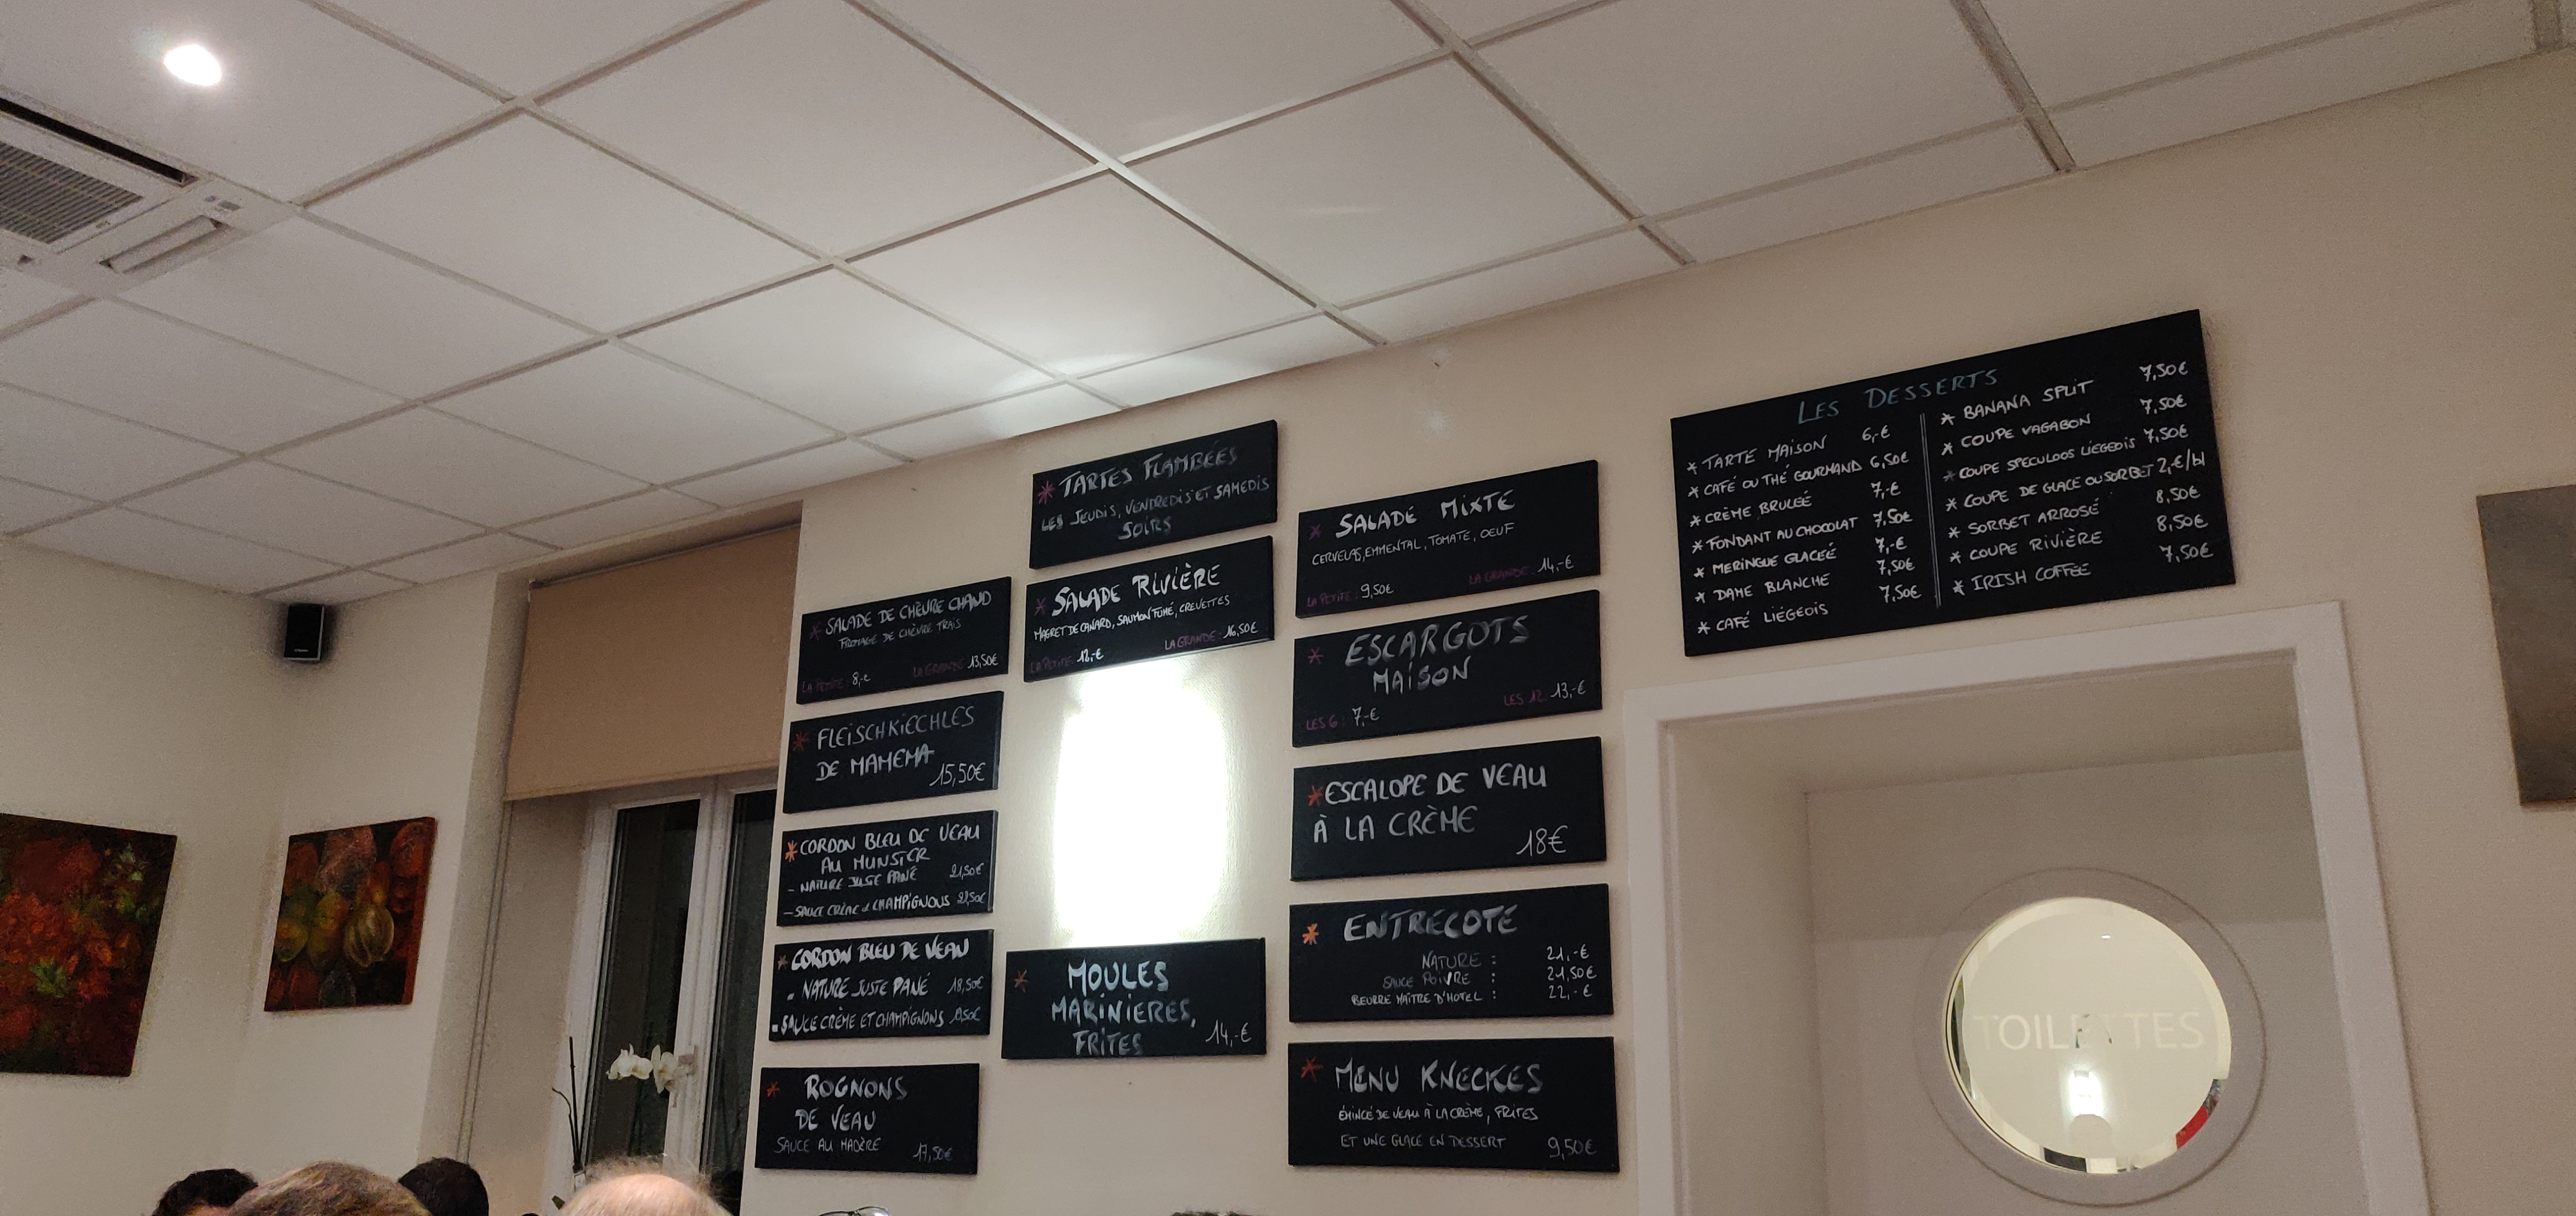 * TARTES FLAMBÉES
LES JEUDIS, VENDREDIS ET SAMEDIS
SOIRS
* SALADE DE CHÈVRE CHAUD
FROMAGE DE CHÈVRE FRAIS
LA PETITE : 8,-€ LA GRANDE 13,50€
* FLEISCHKIECHLES
DE MAMEMA
15,50€
* CORDON BLEU DE VEAU
AU MUNSTER
- NATURE JUSTE PANÉ 21,50€
- SAUCE CRÈME & CHAMPIGNONS
* CORDON BLEU DE VEAU
- NATURE JUSTE PANÉ 18,50€
- SAUCE CRÈME ET CHAMPIGNONS
* ROGNONS
DE VEAU
SAUCE AU MADÈRE 17,50€
* SALADE RIVIÈRE
MAGRET DE CANARD, SAUMON FUMÉ, CREVETTES
LA PETITE : 12,-€ LA GRANDE : 16,50€
* MOULES
MARINIERES,
FRITES 14,-€
* SALADE MIXTE
CERVELAS, EMMENTAL, TOMATE, OEUF
LA PETITE : 9,50€ LA GRANDE : 14,-€
* ESCARGOTS
MAISON
LES 6 : 7,-€ LES 12 : 13,-€
* ESCALOPE DE VEAU
À LA CRÈME
18€
* ENTRECOTE
NATURE : 21,-€
SAUCE POIVRE : 21,50€
BEURRE MAÎTRE D'HOTEL : 22,-€
* MENU KNECKES
ÉMINCÉ DE VEAU À LA CRÈME, FRITES
ET UNE GLACE EN DESSERT 9,50€
LES DESSERTS
* TARTE MAISON 6,-€
* CAFÉ OU THÉ GOURMAND 6,50€
* CRÈME BRULEÉ 7,-€
* FONDANT AU CHOCOLAT 7,50€
* MERINGUE GLACEÉ 7,-€
* DAME BLANCHE 7,50€
* CAFÉ LIÉGEOIS 7,50€
* BANANA SPLIT 7,50€
* COUPE VAGABON 7,50€
* COUPE SPECULOOS LIÉGEOIS 7,50€
* COUPE DE GLACE OU SORBET 2,-€/bl
* SORBET ARROSÉ 8,50€
* COUPE RIVIÈRE 8,50€
* IRISH COFFEE 7,50€
TOILETTES